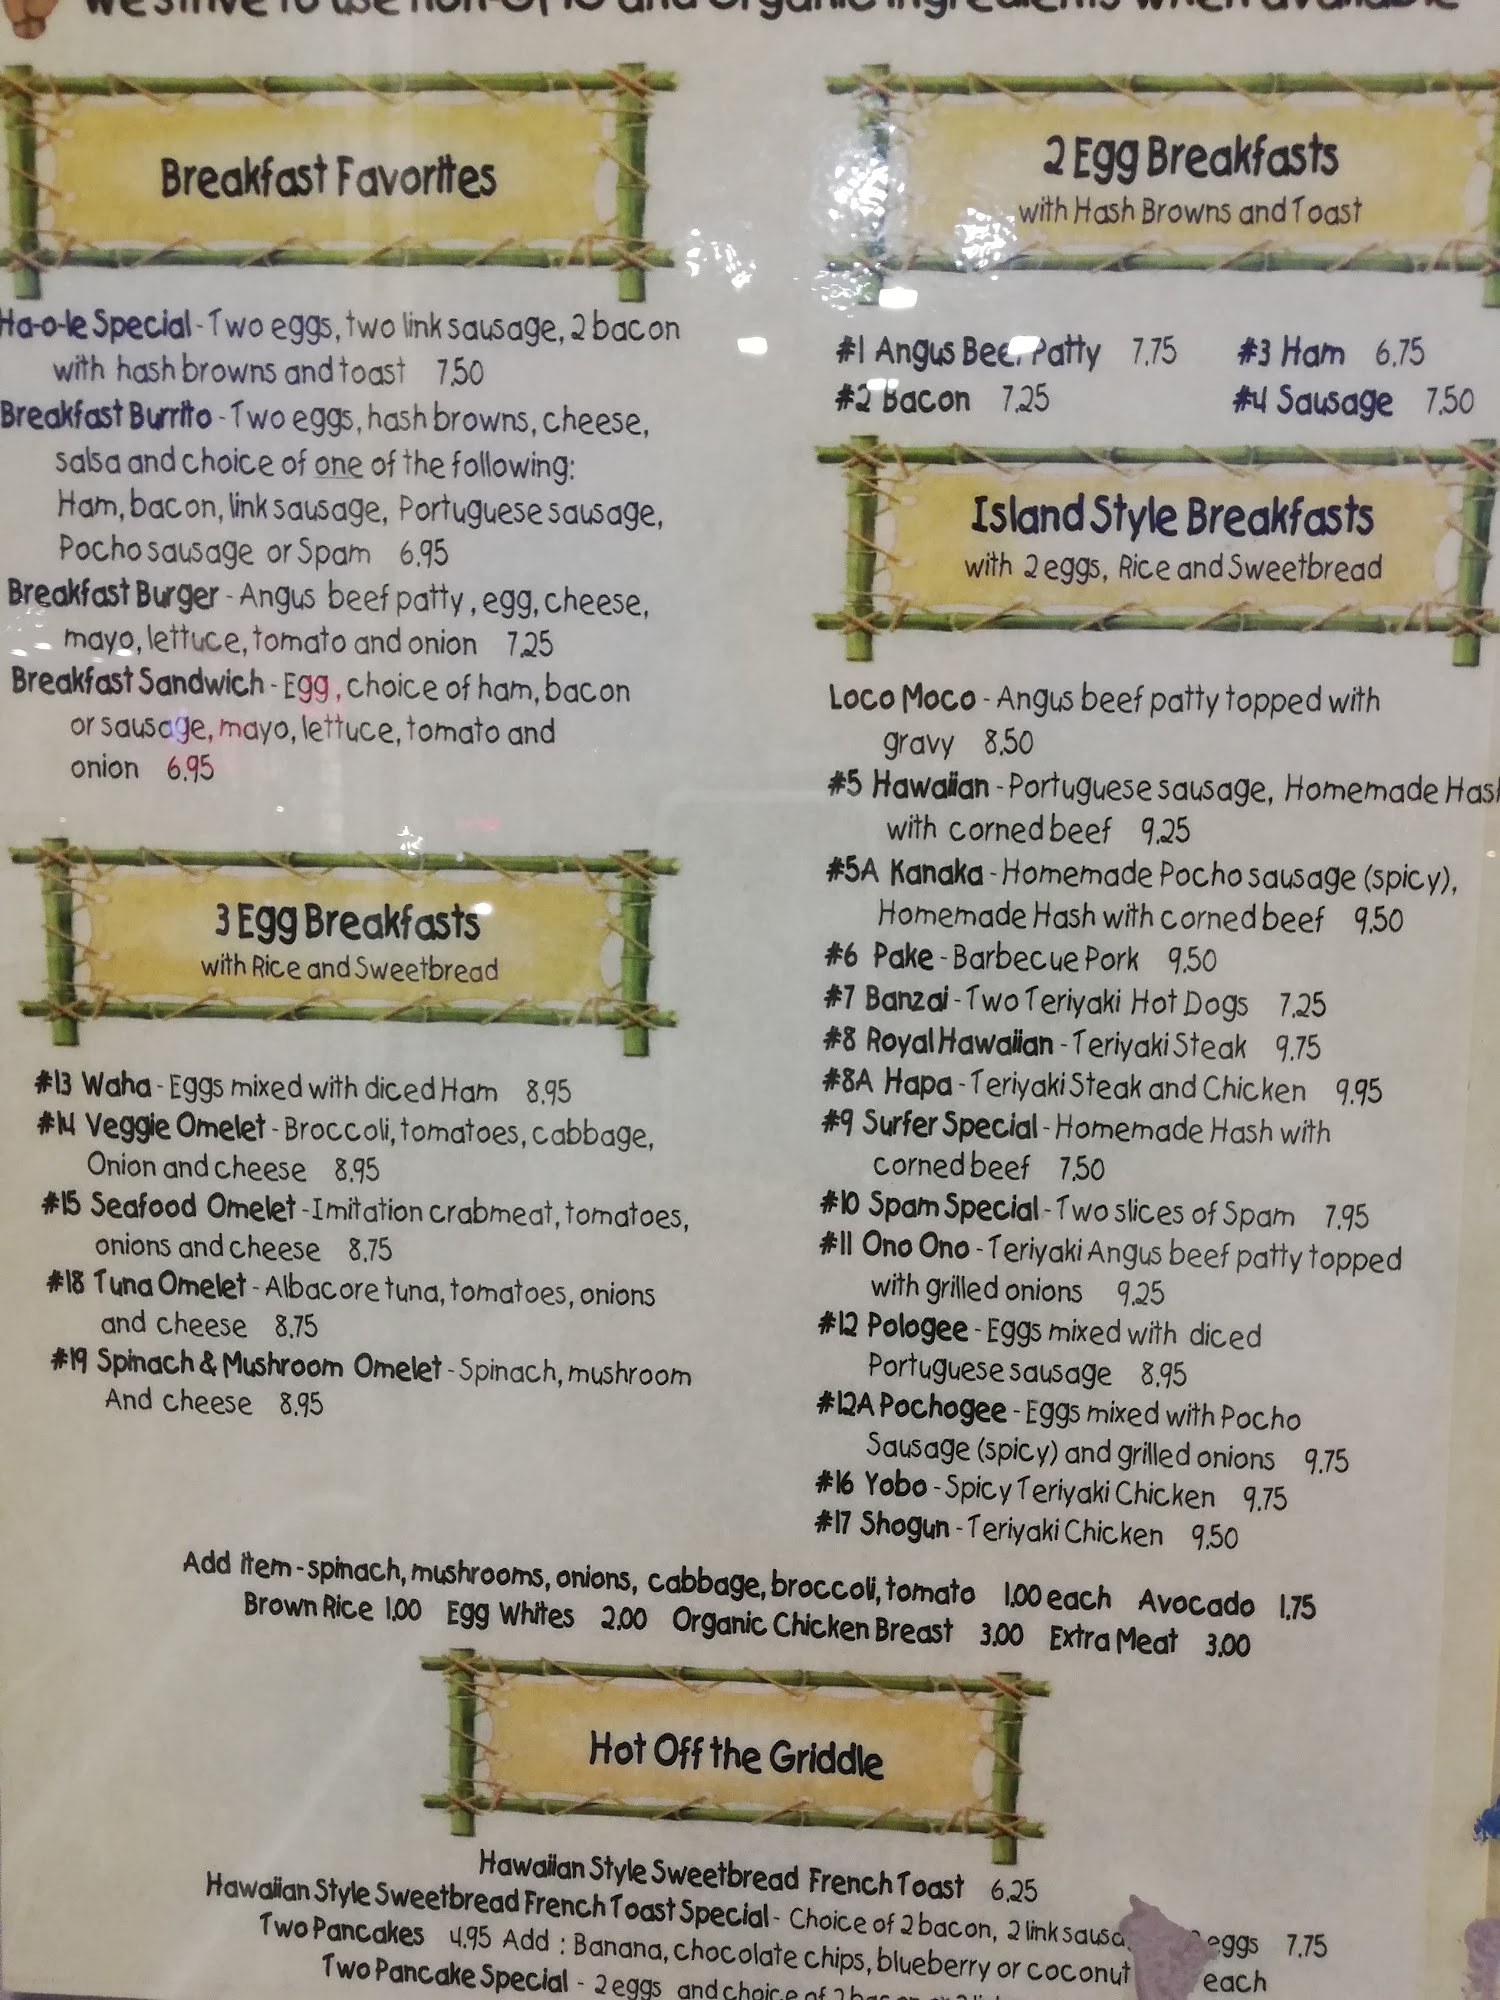 We strive to use non-GMO and organic ingredients when available
Breakfast Favorites
Ha-o-le Special - Two eggs, two link sausage, 2 bacon
with hash browns and toast 7.50
Breakfast Burrito - Two eggs, hash browns, cheese,
salsa and choice of one of the following:
Ham, bacon, link sausage, Portuguese sausage,
Pocho sausage or Spam 6.95
Breakfast Burger - Angus beef patty, egg, cheese,
mayo, lettuce, tomato and onion 7.25
Breakfast Sandwich - Egg, choice of ham, bacon
or sausage, mayo, lettuce, tomato and
onion 6.95
3 Egg Breakfasts
with Rice and Sweetbread
#13 Waha - Eggs mixed with diced Ham 8.95
#14 Veggie Omelet - Broccoli, tomatoes, cabbage,
Onion and cheese 8.95
#15 Seafood Omelet - Imitation crabmeat, tomatoes,
onions and cheese 8.75
#18 Tuna Omelet - Albacore tuna, tomatoes, onions
and cheese 8.75
#19 Spinach & Mushroom Omelet - Spinach, mushroom
And cheese 8.95
2 Egg Breakfasts
with Hash Browns and Toast
#1 Angus Beef Patty 7.75 #3 Ham 6.75
#2 Bacon 7.25 #4 Sausage 7.50
Island Style Breakfasts
with 2 eggs, Rice and Sweetbread
Loco Moco - Angus beef patty topped with
gravy 8.50
#5 Hawaiian - Portuguese sausage, Homemade Hash
with corned beef 9.25
#5A Kanaka - Homemade Pocho sausage (spicy),
Homemade Hash with corned beef 9.50
#6 Pake - Barbecue Pork 9.50
#7 Banzai - Two Teriyaki Hot Dogs 7.25
#8 Royal Hawaiian - Teriyaki Steak 9.75
#8A Hapa - Teriyaki Steak and Chicken 9.95
#9 Surfer Special - Homemade Hash with
corned beef 7.50
#10 Spam Special - Two slices of Spam 7.95
#11 Ono Ono - Teriyaki Angus beef patty topped
with grilled onions 9.25
#12 Pologee - Eggs mixed with diced
Portuguese sausage 8.95
#12A Pochogee - Eggs mixed with Pocho
Sausage (spicy) and grilled onions 9.75
#16 Yobo - Spicy Teriyaki Chicken 9.75
#17 Shogun - Teriyaki Chicken 9.50
Add item - spinach, mushrooms, onions, cabbage, broccoli, tomato 1.00 each Avocado 1.75
Brown Rice 1.00 Egg Whites 2.00 Organic Chicken Breast 3.00 Extra Meat 3.00
Hot Off the Griddle
Hawaiian Style Sweetbread French Toast 6.25
Hawaiian Style Sweetbread French Toast Special - Choice of 2 bacon, 2 link eggs 7.75
Two Pancakes 4.95 Add : Banana, chocolate chips, blueberry or coconut each
Two Pancake Special - 2 eggs and choice of 2